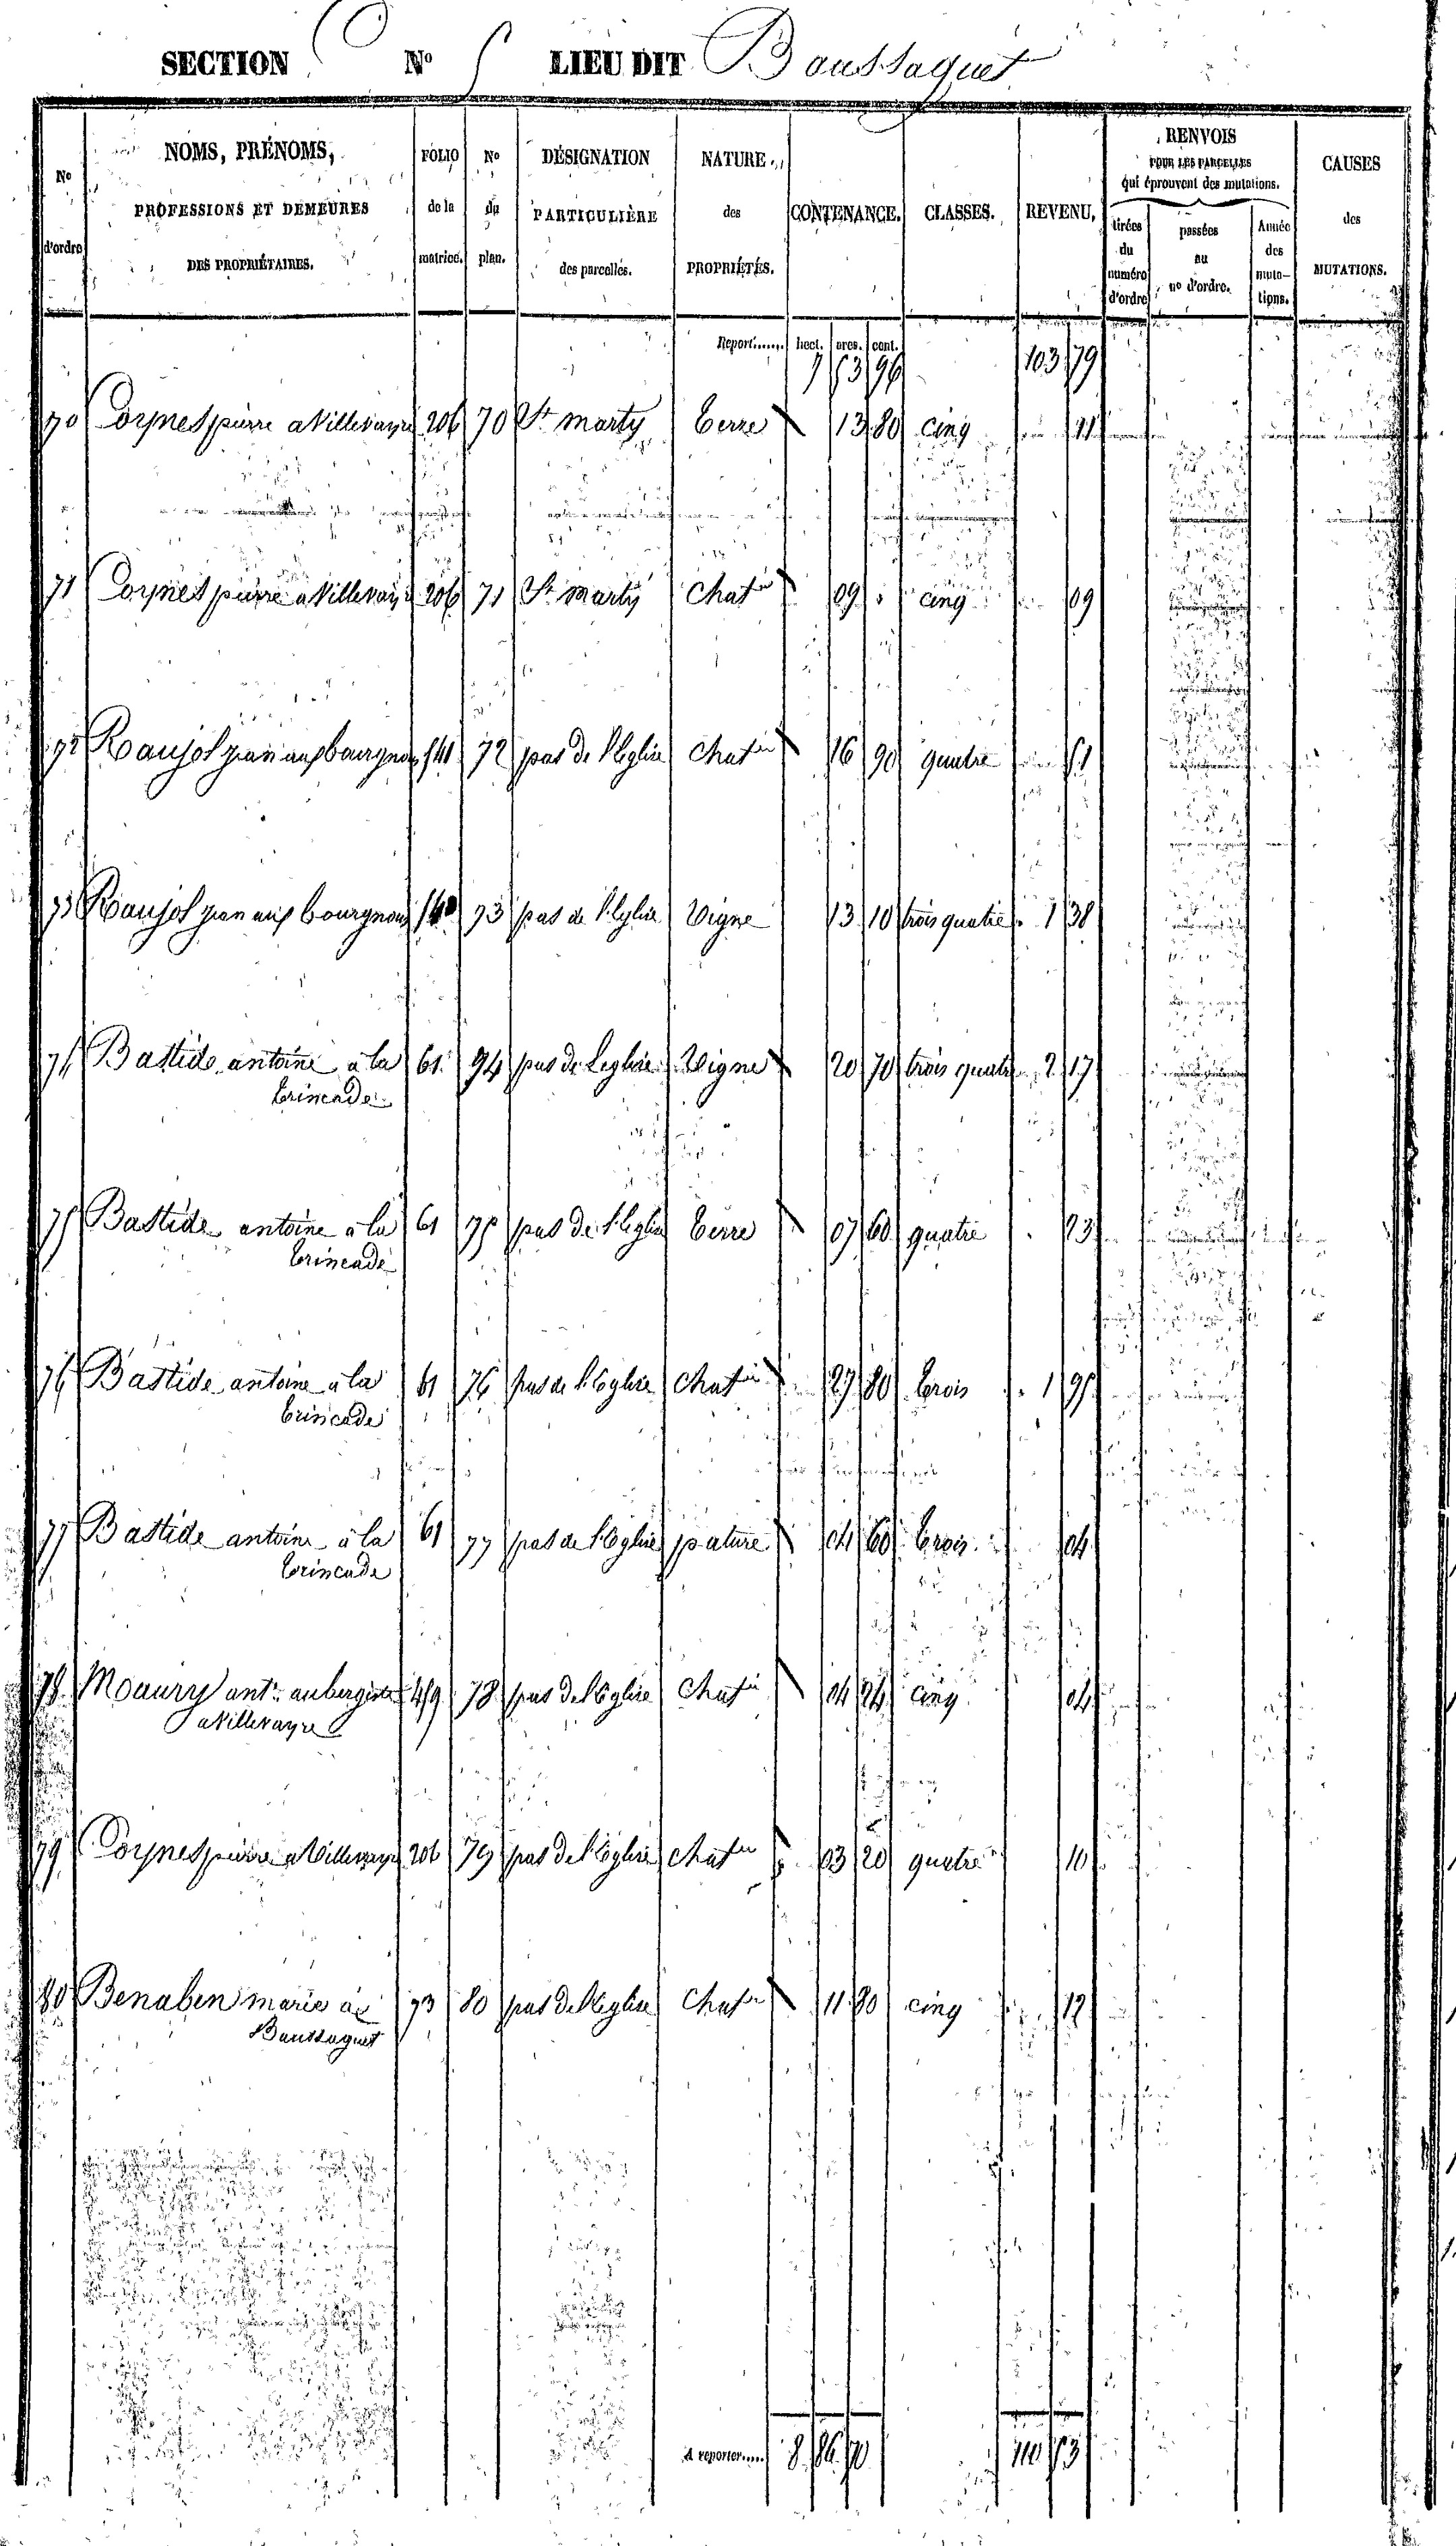 SECTION C No 5 LIEU DIT Boussaquet
No d'ordre
NOMS, PRÉNOMS, PROFESSIONS ET DEMEURES DES PROPRIÉTAIRES.
FOLIO de la matrice.
No du plan.
DÉSIGNATION PARTICULIÈRE des parcelles.
NATURE des PROPRIÉTÉS.
CONTENANCE.
CLASSES.
REVENU.
RENVOIS POUR LES PARCELLES qui éprouvent des mutations.
tirées du numéro d'ordre
passées au no d'ordre.
Année des mutations.
CAUSES des MUTATIONS.
Report...... hect. ares. cent.
7 53 96 103 79
70 pierre a Villevayre 206 70 St marty terre 13 80 cinq 41
71 pierre a Villevayre 206 71 St marty chatin 09 cinq 09
72 Raujol jean 72 pas de l'Eglise chatin 16 90 quatre 51
73 Raujol jean 73 pas de l'Eglise Vigne 13 10 trois quatre 1 38
74 Bastide antoine à la 61 74 pas de Leglise Vigne 20 70 trois quatre 2 17
trincade
75 Bastide antoine à la 61 75 pas de l'Eglise terre 07 60 quatre 23
trincade
76 Bastide antoine à la 61 76 pas de l'Eglise chatin 27 80 trois 1 95
trincade
77 Bastide antoine à la 61 77 pas de l'Eglise pature 04 60 trois 04
trincade
78 Moaury ant. aubergiste 78 pas de l'Eglise chatin 04 24 cinq 04
a Villevayre
79 pierre a Villevayre 206 79 pas de l'Eglise chatin 03 20 quatre 10
80 Benaben marie a 73 80 pas de l'Eglise chatin 11 80 cinq 12
Boussaquet
A reporter..... 8 86 70 110 53